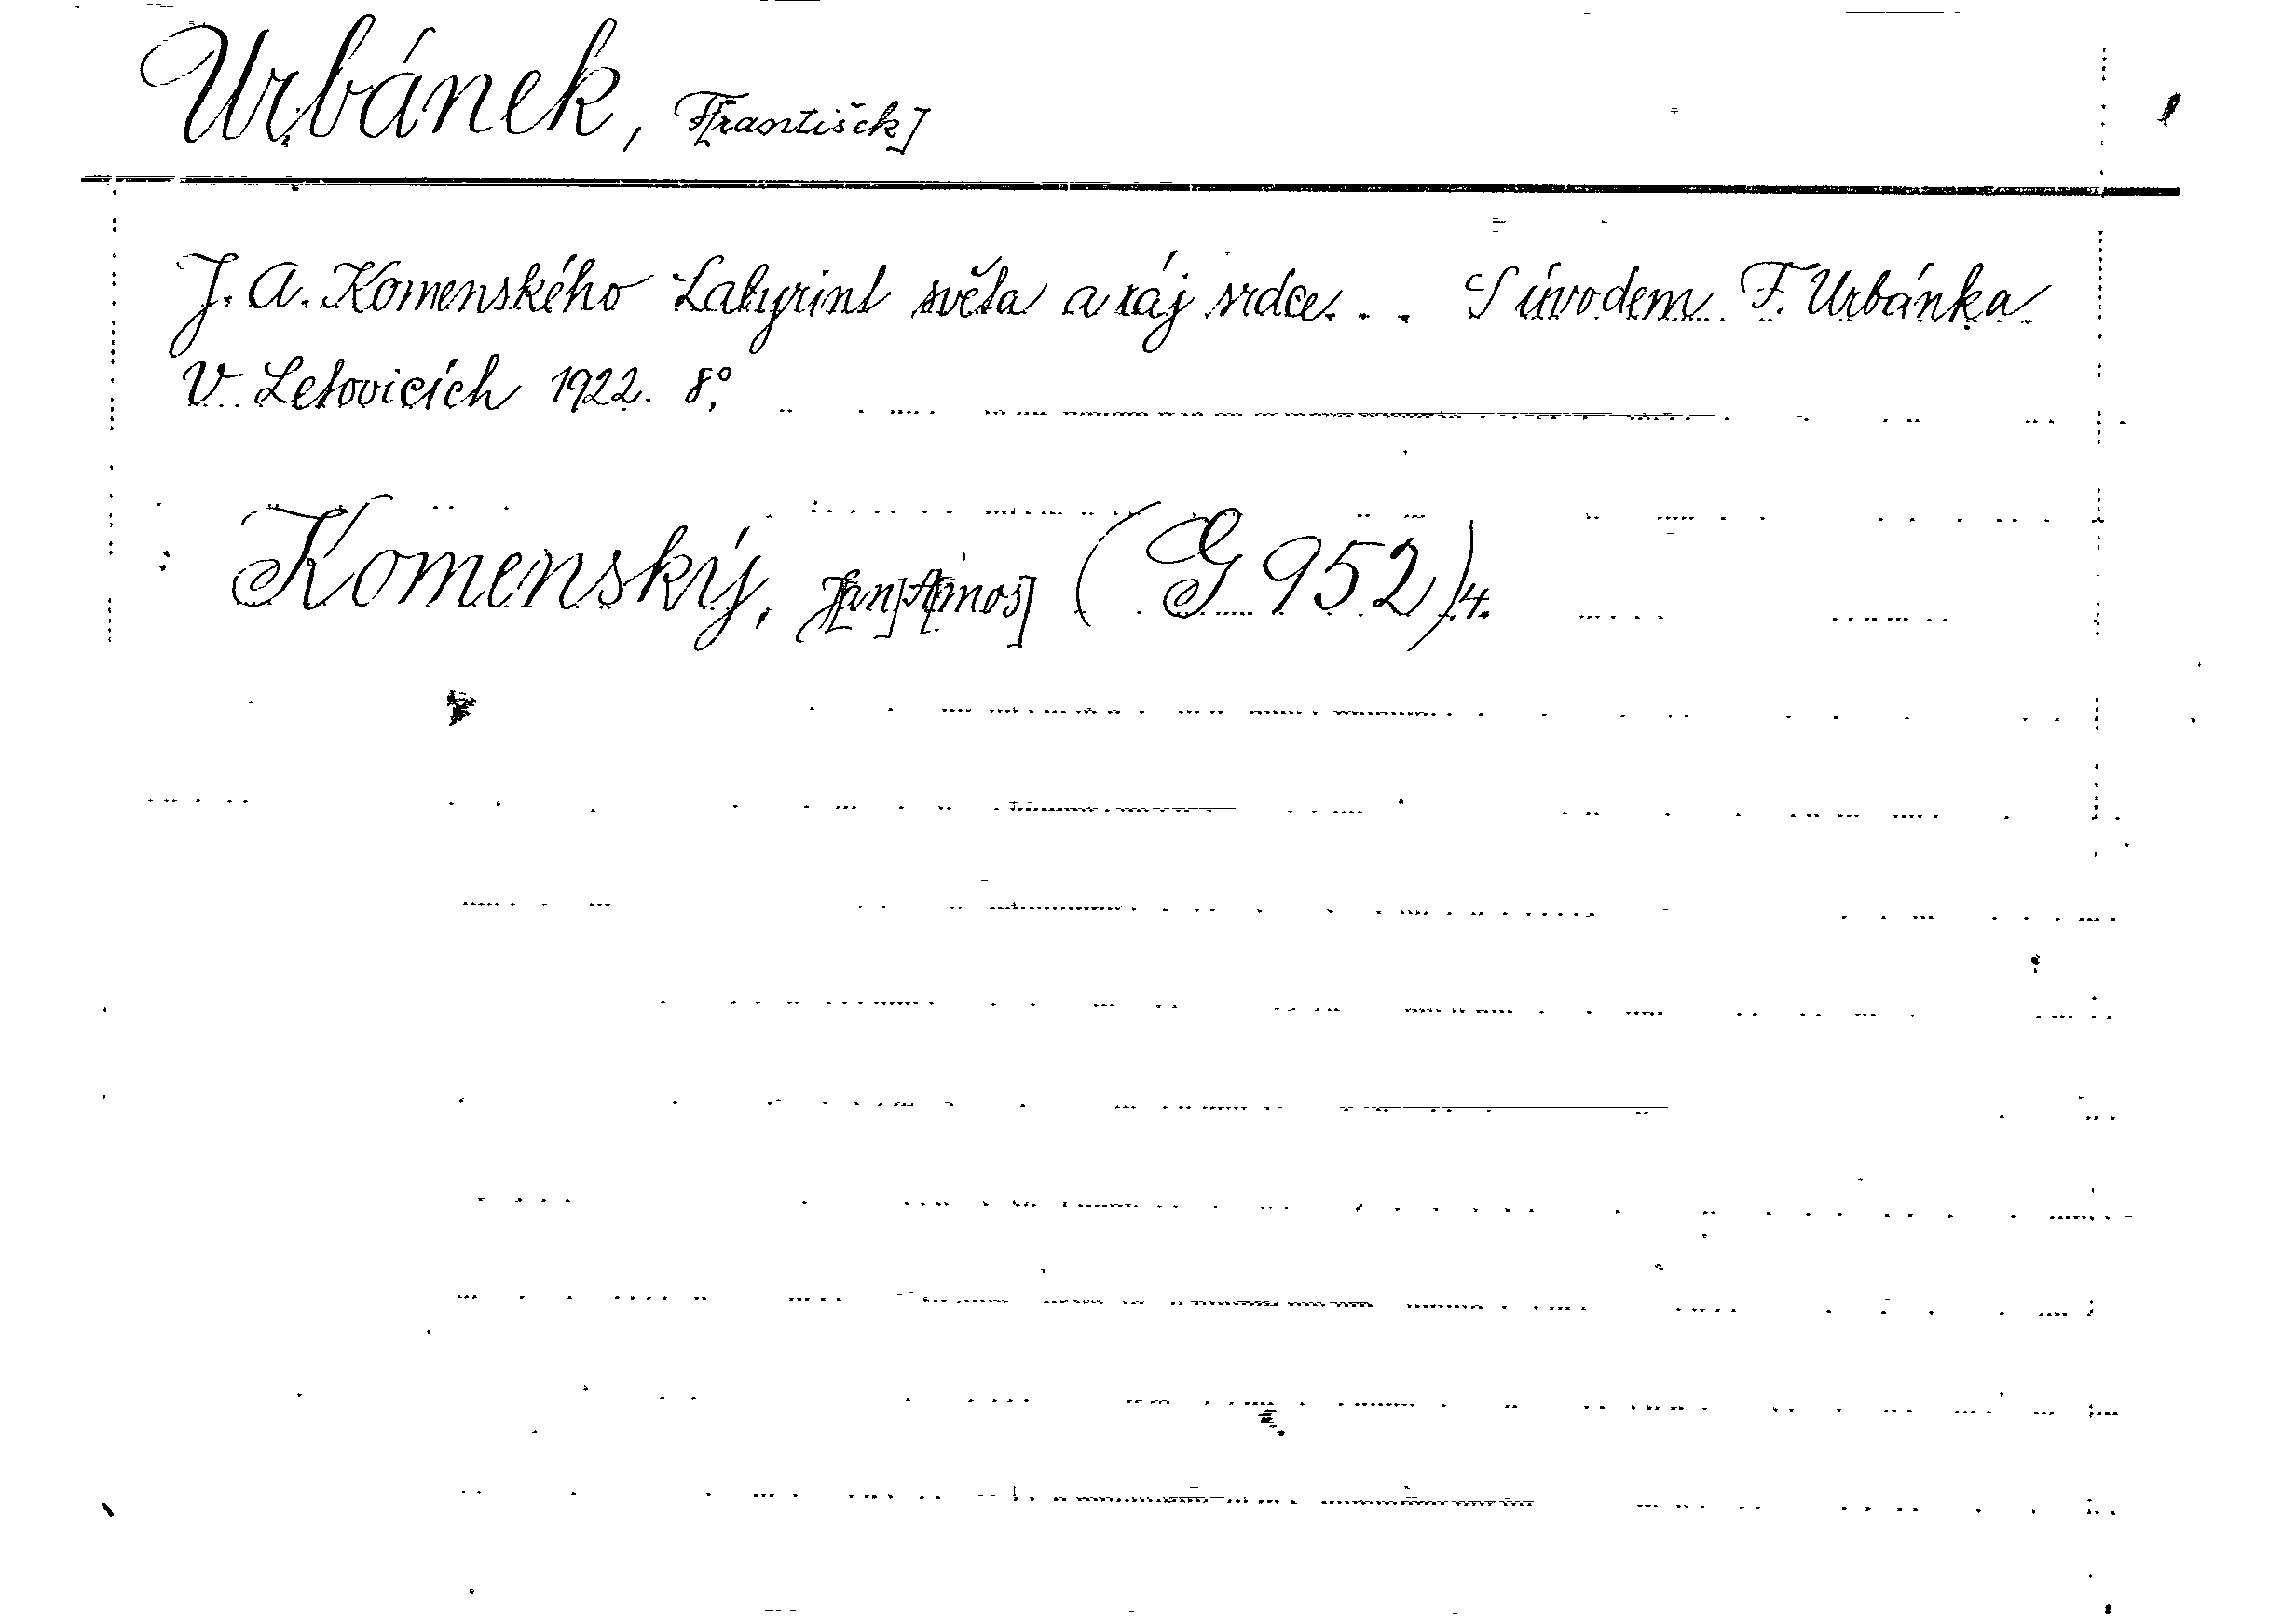 Urbánek, F[rantišek]
J. A. Komenského Labyrint světa a ráj srdce. . . S úvodem F. Urbánka
V Letovicích 1922. 8°.
Komenský, J[an] A[mos] (G 952)4.